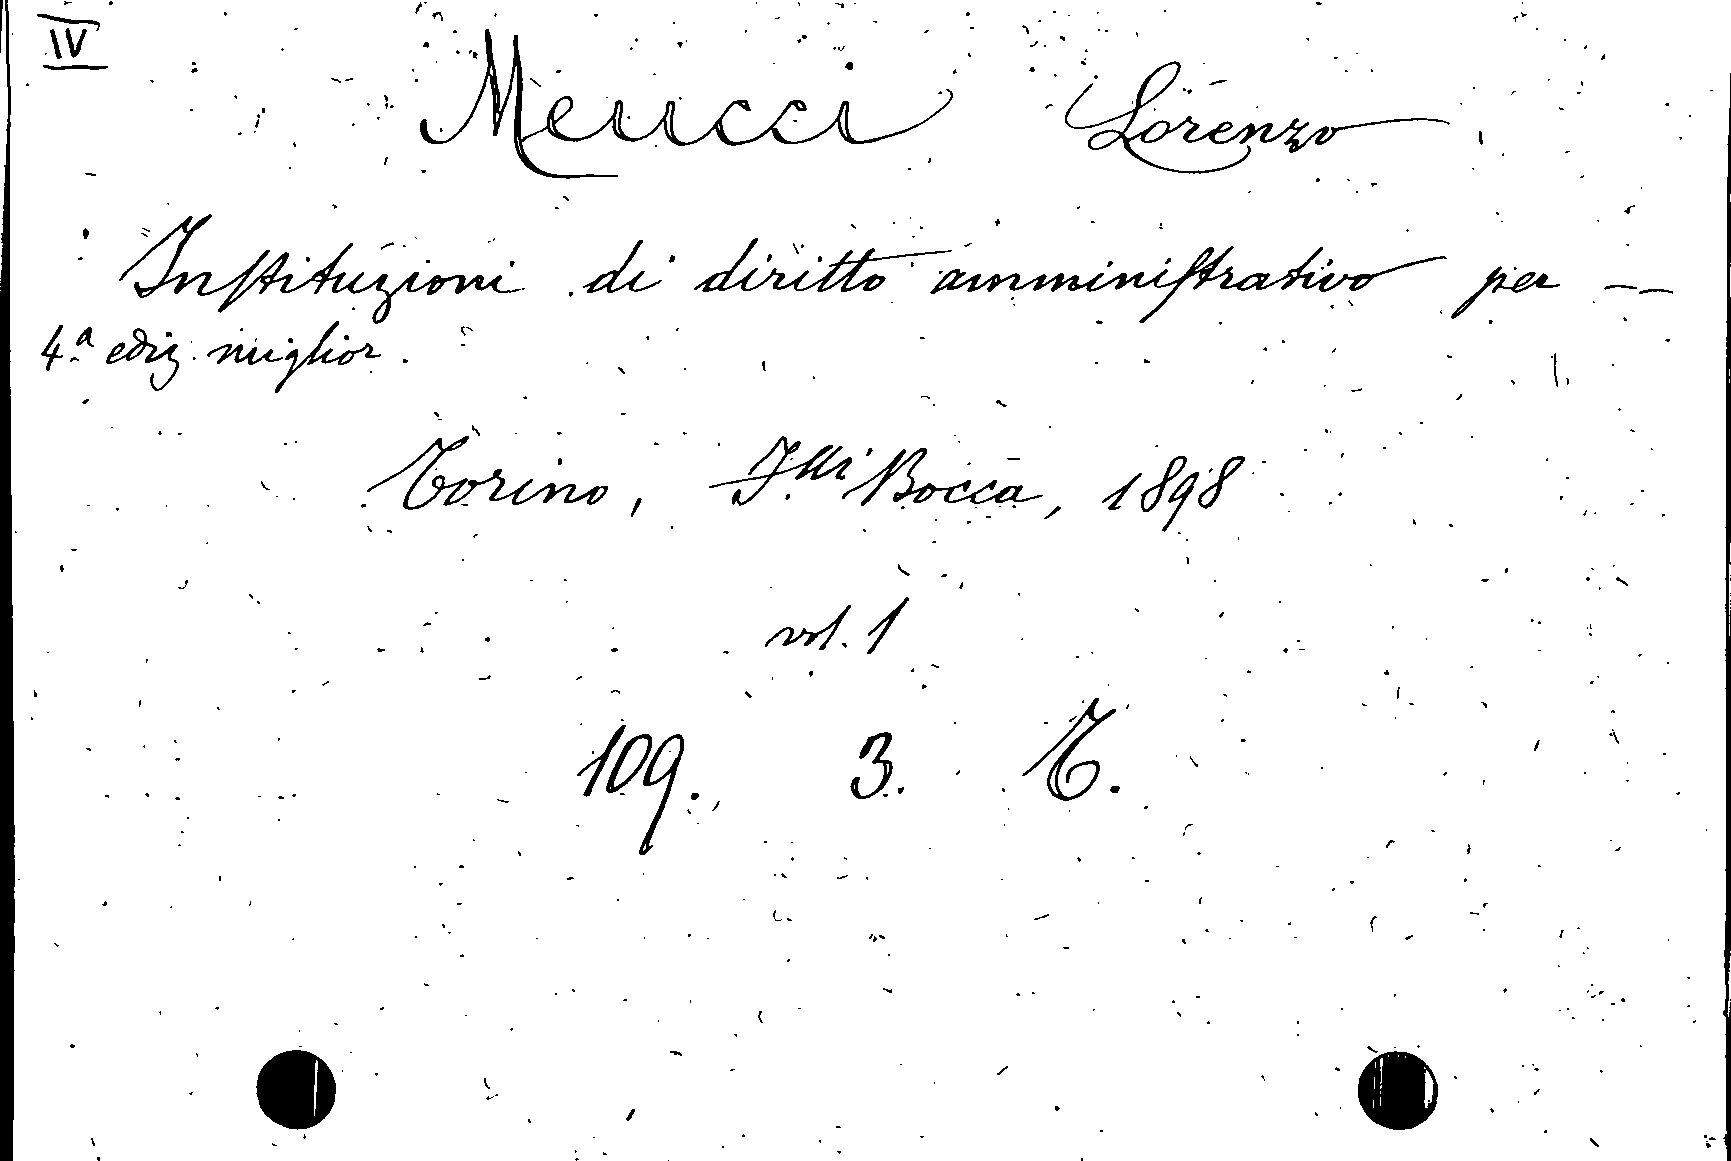 IV
Meucci Lorenzo
Instituzioni di diritto amministrativo per --
4.a ediz. miglior.
Torino, F.lli Bocca, 1898
vol. 1
109. 3. T.